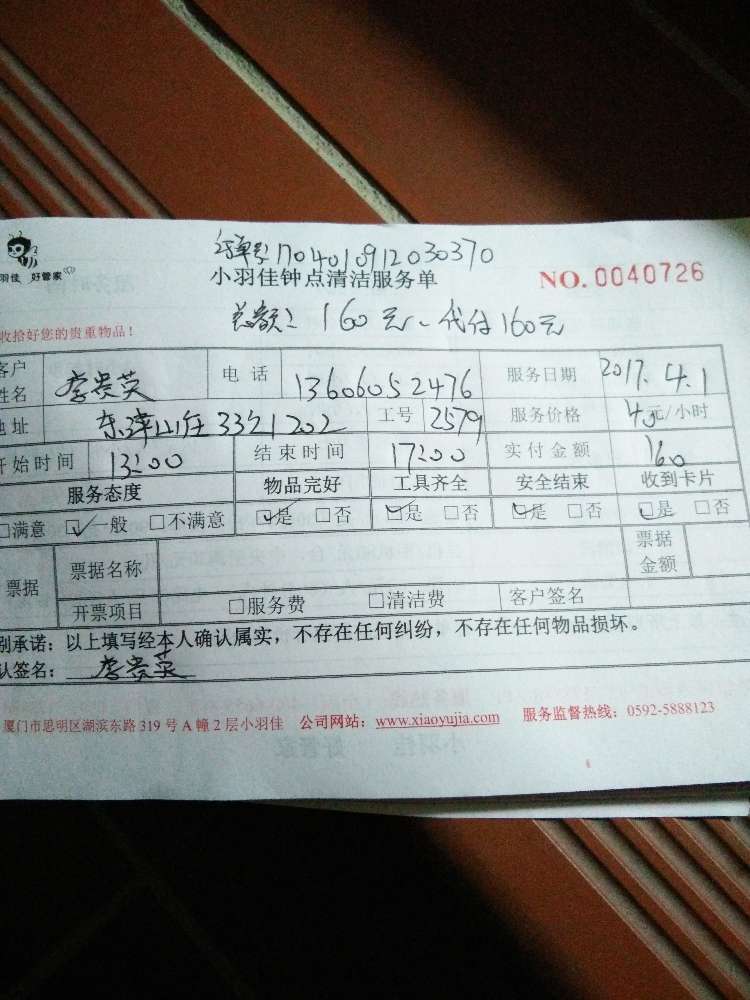 订单号1704010912030370
羽佳 好管家
小羽佳钟点清洁服务单
NO. 0040726
总额：160元、代付160元
收拾好您的贵重物品！
客户姓名 李贵英 电话 13606052476 服务日期 2017.4.1
地址 东浦山庄33之1202 工号 2579 服务价格 40元/小时
开始时间 13:00 结束时间 17:00 实付金额 160
服务态度 物品完好 工具齐全 安全结束 收到卡片
□满意 ☑一般 □不满意 ☑是 □否 ☑是 □否 ☑是 □否 ☑是 □否
票据 票据名称 票据金额
开票项目 □服务费 □清洁费 客户签名
别承诺：以上填写经本人确认属实，不存在任何纠纷，不存在任何物品损坏。
认签名：李贵英
厦门市思明区湖滨东路 319 号 A 幢 2 层小羽佳 公司网站：www.xiaoyujia.com 服务监督热线：0592-5888123